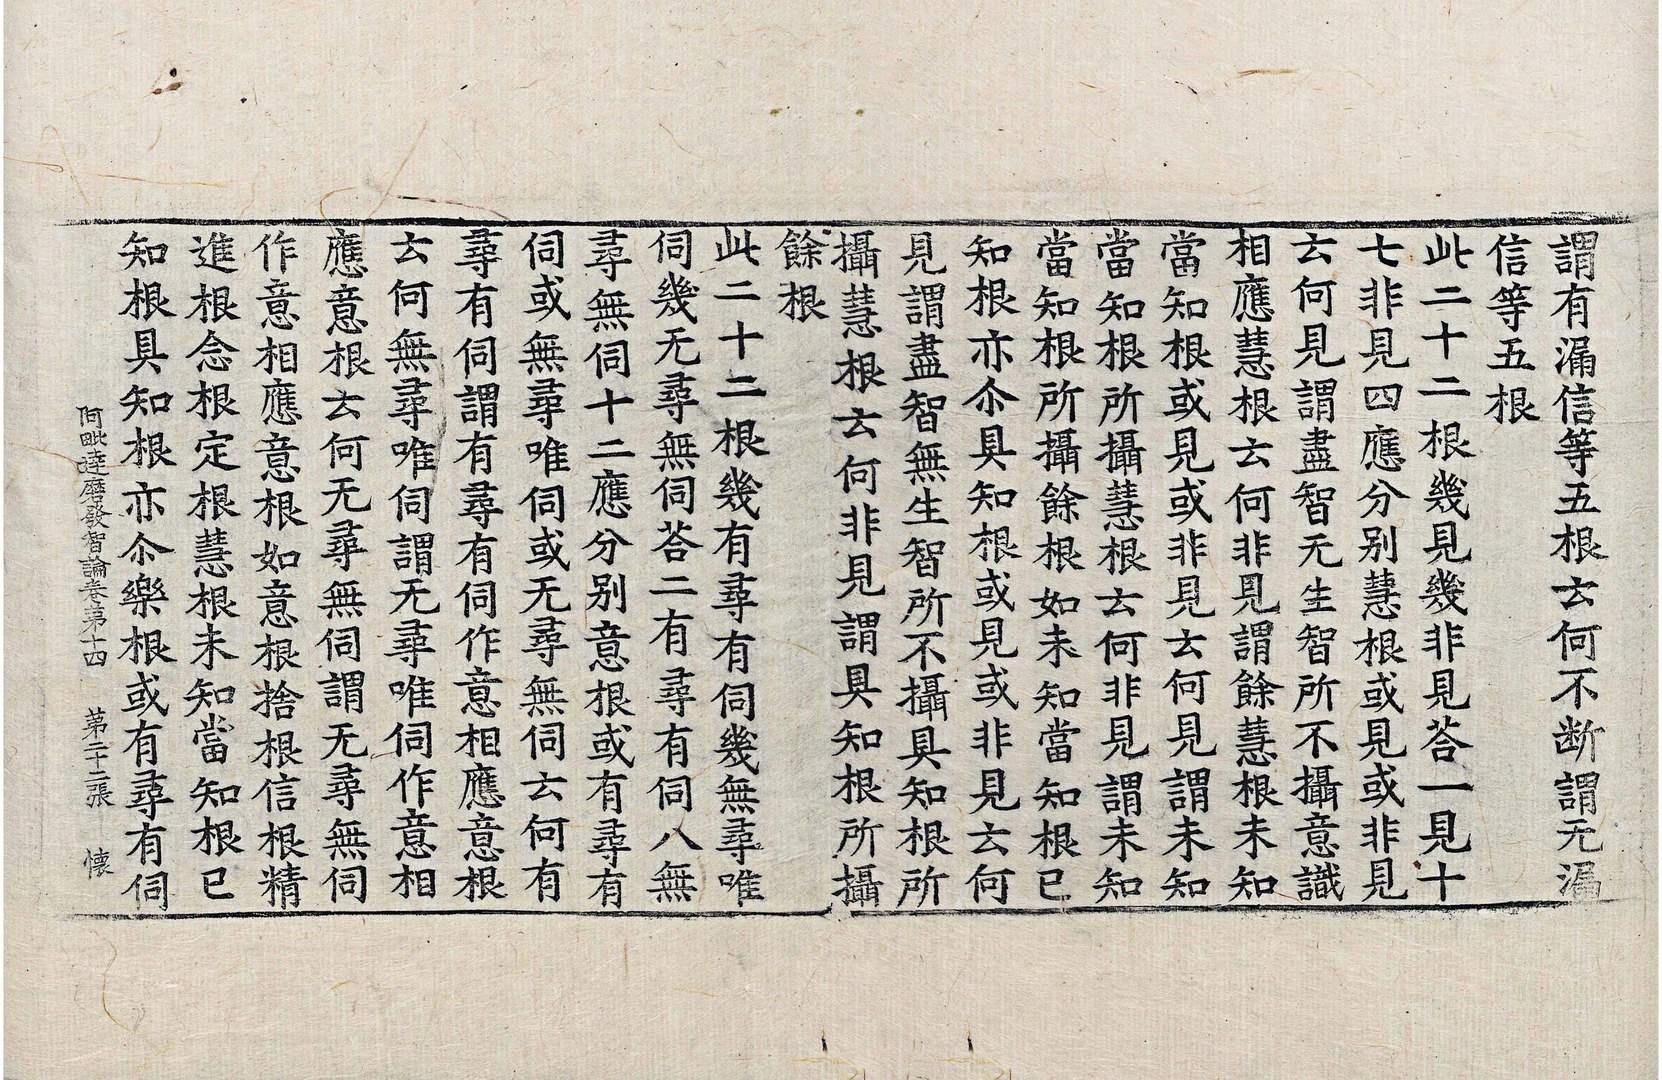 謂有漏信等五根云何不断謂无漏
信等五根
此二十二根幾見幾非見荅一見十
七非見四應分別慧根或見或非見
云何見謂盡智无生智所不攝意識
相應慧根云何非見謂餘慧根未知
當知根或見或非見云何見謂未知
當知根所攝慧根云何非見謂未知
當知根所攝餘根如未知當知根已
知根亦尒具知根或見或非見云何
見謂盡智無生智所不攝具知根所
攝慧根云何非見謂具知根所攝
餘根
此二十二根幾有尋有伺幾無尋唯
伺幾无尋無伺荅二有尋有伺八無
尋無伺十二應分別意根或有尋有
伺或無尋唯伺或无尋無伺云何有
尋有伺謂有尋有伺作意相應意根
云何無尋唯伺謂无尋唯伺作意相
應意根云何无尋無伺謂无尋無伺
作意相應意根如意根捨根信根精
進根念根定根慧根未知當知根已
知根具知根亦尒樂根或有尋有伺
阿毗達磨發智論卷第十四 第二十二張 懷